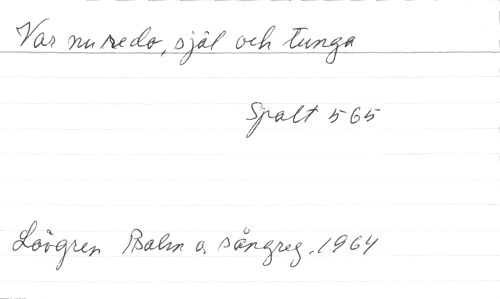 Var nu redo, själ och tunga
Spalt 565
Lövgren Psalm o. sångreg. 1964